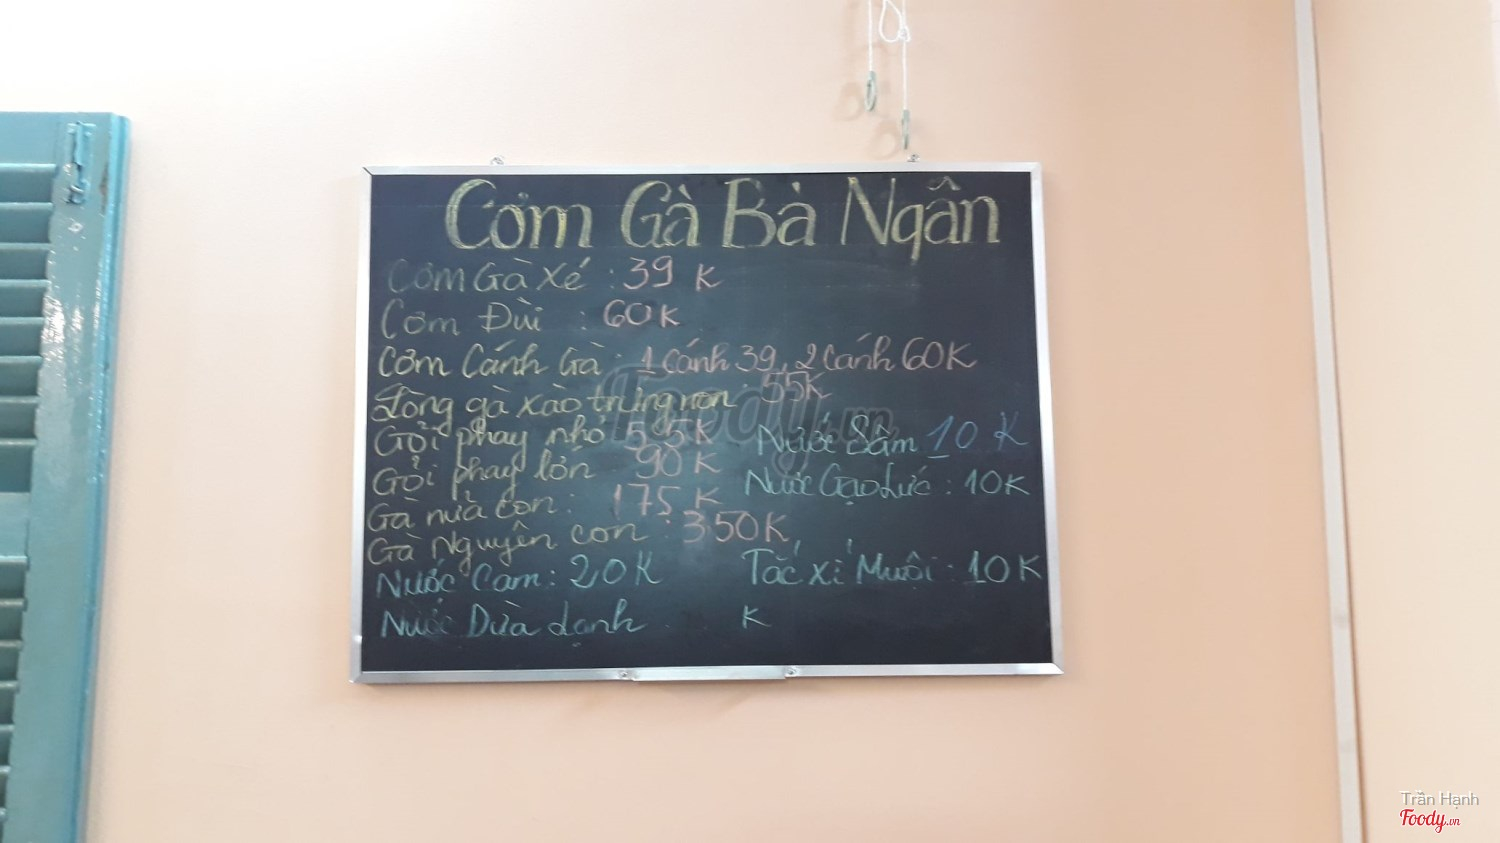 Cơm Gà Bà Ngân
Cơm Gà Xé : 39 K
Cơm Đùi : 60K
Cơm Cánh Gà : 1 cánh 39, 2 cánh 60K
Lòng gà xào trứng non : 55K
Gỏi phay nhỏ 55K
Gỏi phay lớn 90K
Gà nửa con : 175 K
Gà Nguyên con : 350K
Nước Cam : 20K
Nước Dừa Lạnh : K
Nước Sâm 10 K
Nước Gạo Lức : 10K
Tắc xí Muội : 10K
Foody.vn
Trần Hạnh
Foody.vn